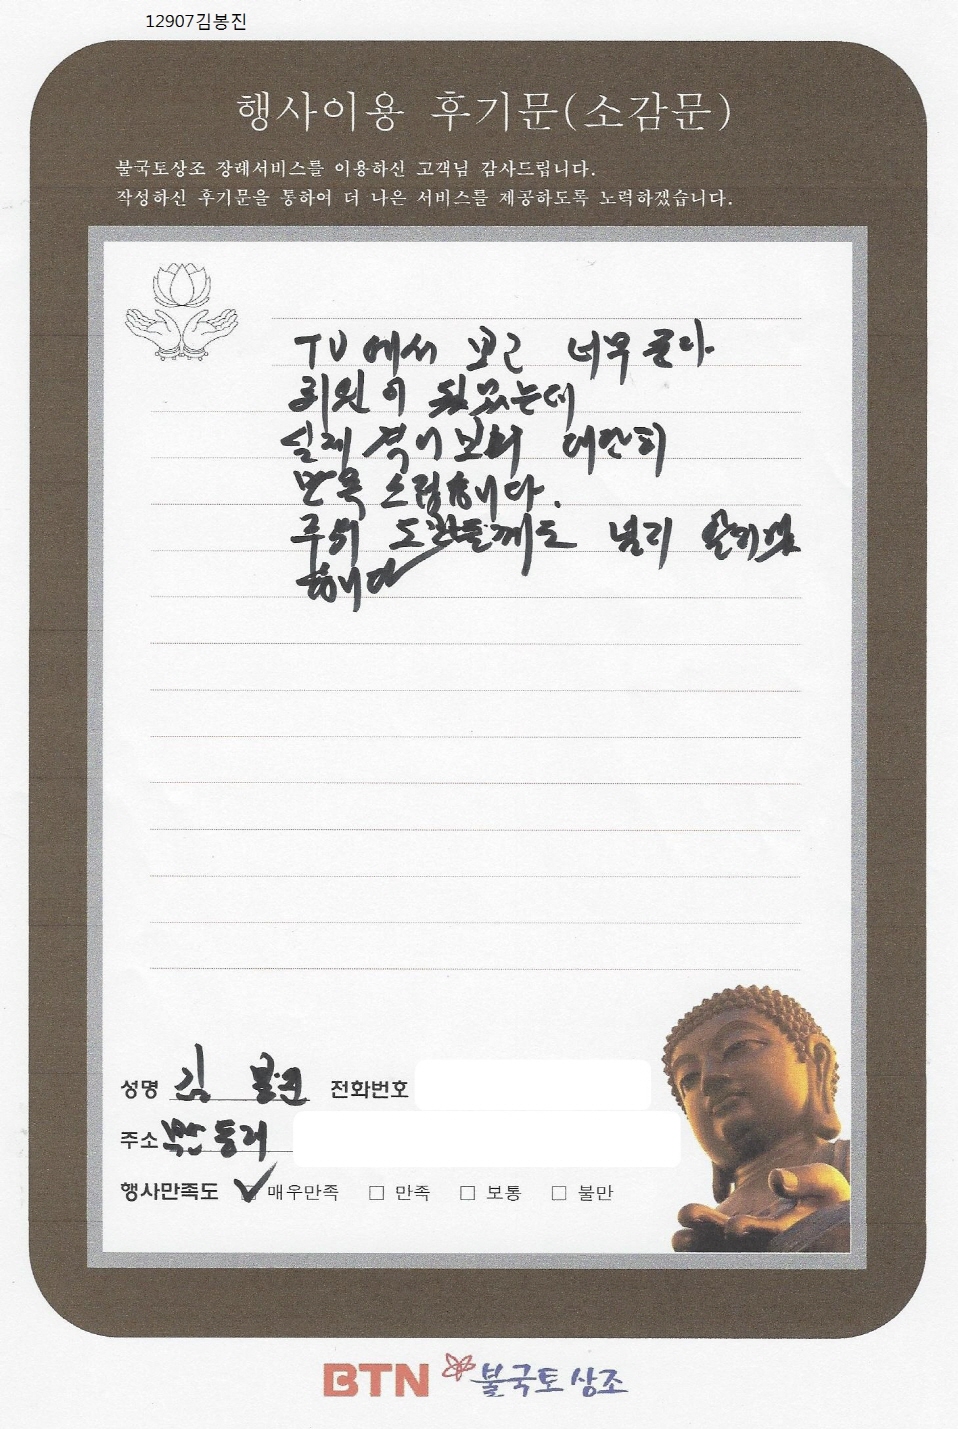 12907김봉진
행사이용 후기문(소감문)
불국토상조 장례서비스를 이용하신 고객님 감사드립니다.
작성하신 후기문을 통하여 더 나은 서비스를 제공하도록 노력하겠습니다.
TV에서 보고 너무 좋다
회원이 되었는데
실제 격어보니 대단히
만족 스럽습니다.
주위 도반들께도 널리 알리겠
습니다
성명 김 전화번호
주소 부산 동래
행사만족도 ✓ 매우만족 □ 만족 □ 보통 □ 불만
BTN 불국토 상조